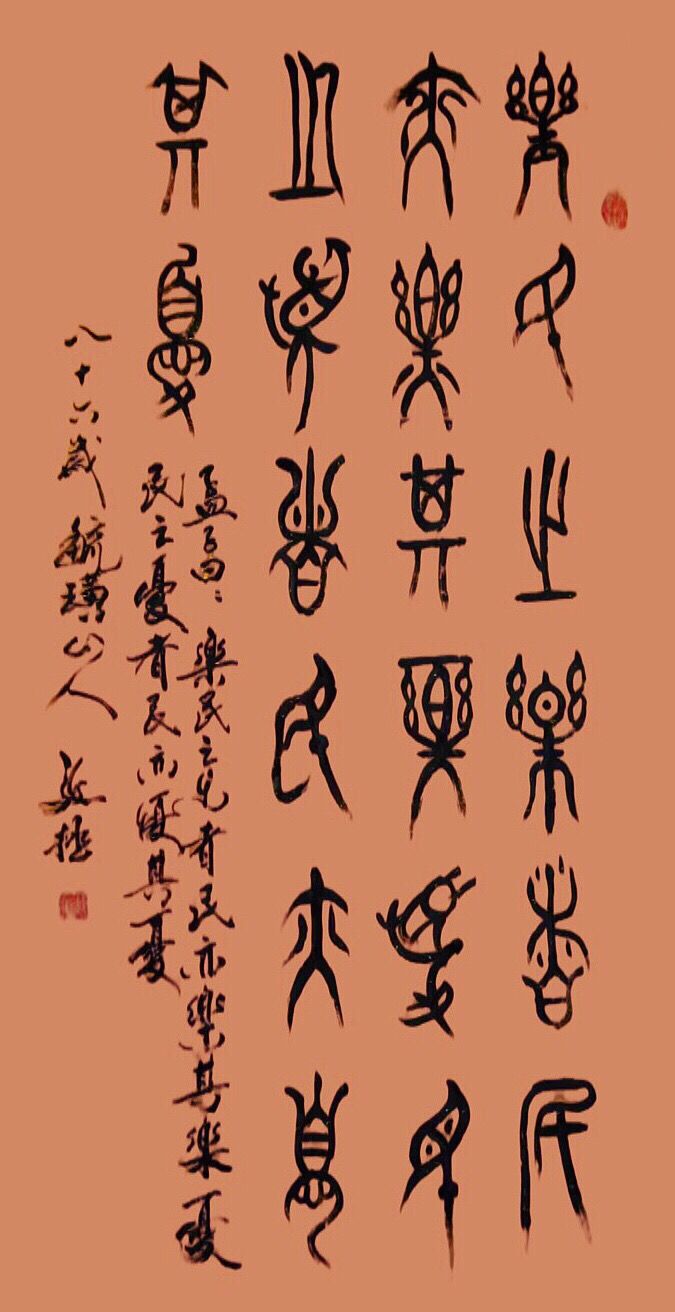 樂民之樂者民
亦樂其樂憂民
之憂者民亦憂
其憂
孟子曰：樂民之乐者民亦樂其樂憂
民之憂者民亦憂其憂
八十六歲 毓璜山人